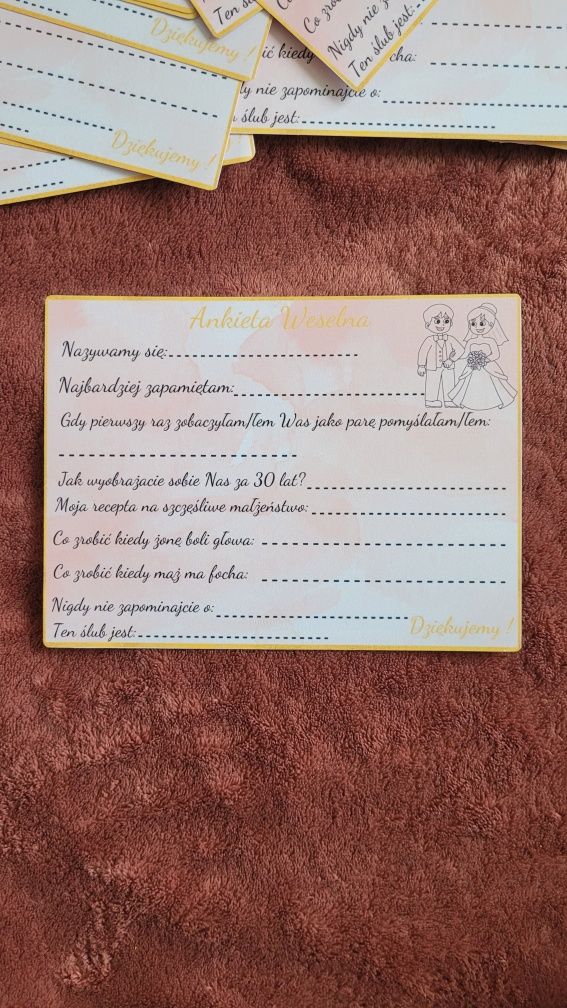 Ten
Dziękujemy !
Co zrobić
Nigdy nie
Ten ślub jest:
ić kiedy
cha:
dy nie zapominajcie o:
ślub jest:
Dziękujemy !
Ankieta Weselna
Nazywamy się:
Najbardziej zapamiętam:
Gdy pierwszy raz zobaczyłam/łem Was jako parę pomyślałam/łem:
Jak wyobrażacie sobie Nas za 30 lat?
Moja recepta na szczęśliwe małżeństwo:
Co zrobić kiedy żonę boli głowa:
Co zrobić kiedy mąż ma focha:
Nigdy nie zapominajcie o:
Ten ślub jest:
Dziękujemy !